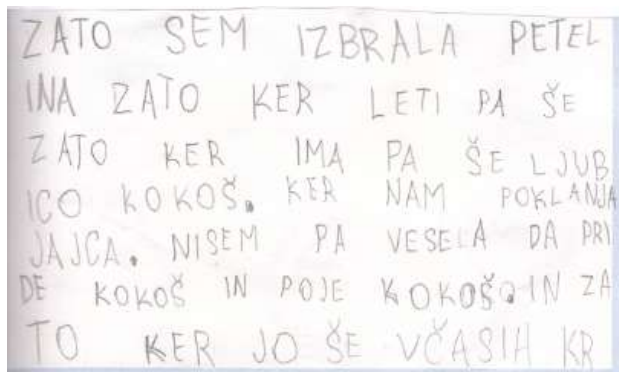 ZATO SEM IZBRALA PETEL
INA ZATO KER LETI PA ŠE
ZATO KER IMA PA ŠE LJUB
ICO KOKOŠ. KER NAM POKLANJA
JAJCA. NISEM PA VESELA DA PRI
DE KOKOŠ IN POJE KOKOŠ. IN ZA
TO KER JO ŠE VČASIH KR